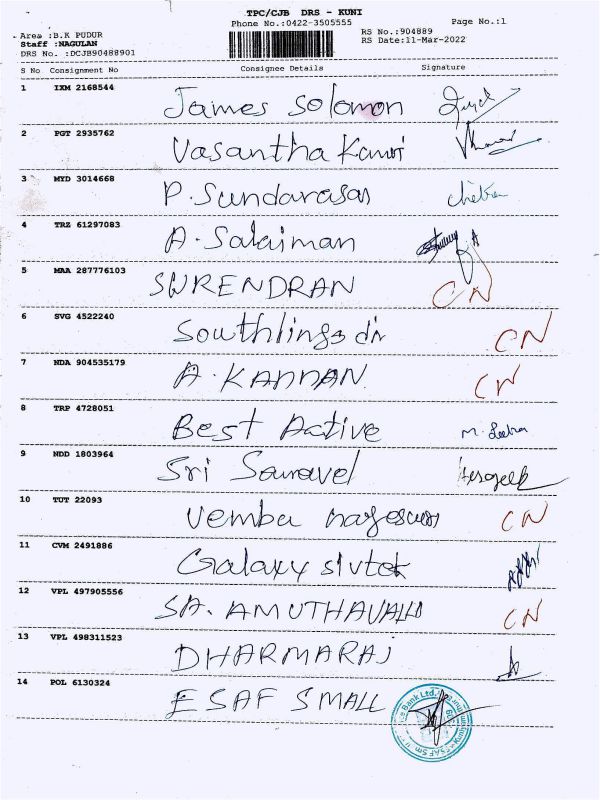 TPC/CJB DRS - KUNI
Phone No.:0422-3505555
Page No.:1
Area :B.K PUDUR
RS No.:904889
Staff :NAGULAN
RS Date:11-Mar-2022
DRS No. :DCJB90488901
S No Consignment No Consignee Details Signature
1 IXM 2168544 James Solomon
2 PGT 2935762 Vasantha Kumri
3 MYD 3014668 P. Sundarasan
4 TRZ 61297083 A. Salaiman
5 MAA 287776103 SURENDRAN CN
6 SVG 4522240 CN
7 NDA 904535179 A. KANNAN CN
8 TRP 4728051 Best Active
9 NDD 1803964 Sri
10 TUT 22093 Vembu CN
11 CVM 2491886 Galaxy
12 VPL 497905556 SA. AMUTHAVALLI CN
13 VPL 498311523 DHARMARAJ
14 POL 6130324 ESAF SMALL
Bank Ltd.